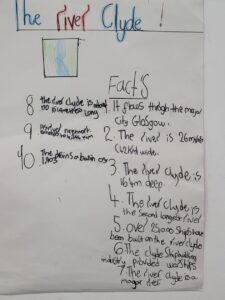 The river Clyde !
Facts
1 It flows through the major
city Glasgow.
2. The river is 26 miles
wide.
3. The river Clyde is
164m deep.
4. The river Clyde is
the second longest river
5. Over 25000 Ships have
been built on the river clyde
6 The clyde Shipbuilding
industry provided warships
7 The river clyde is a
major river
8 the river clyde is about
long
9
10 The